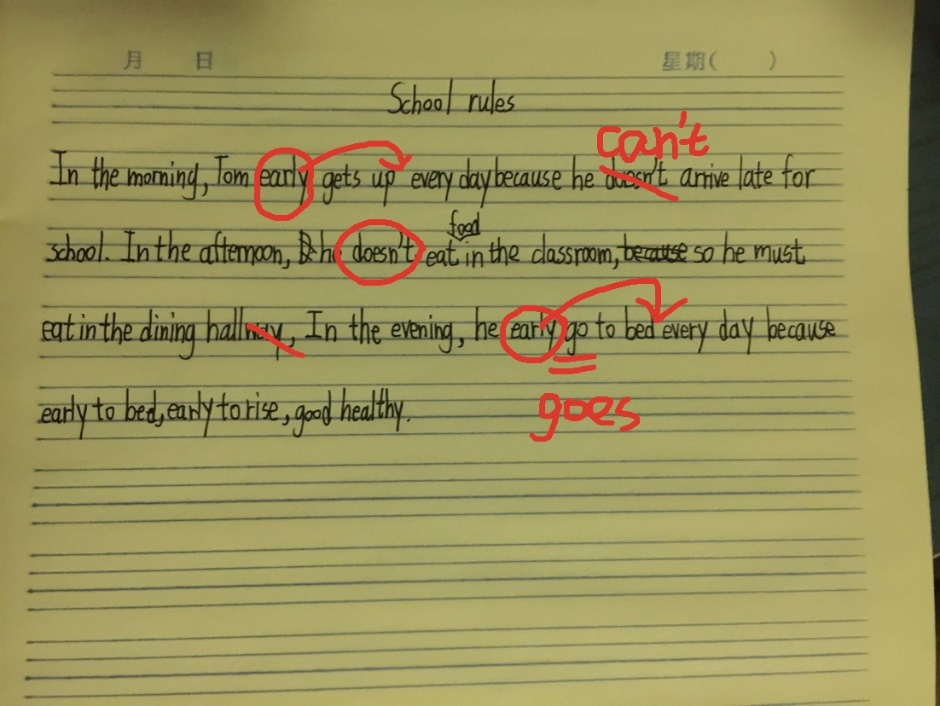 月 日 星期( )
School rules
can't
In the morning, Tom early gets up every day because he doesn't arrive late for
food
school. In the afternoon, he doesn't eat in the classroom, because so he must
eat in the dining hallway, In the evening, he early go to bed every day because
goes
early to bed, early to rise, good healthy.